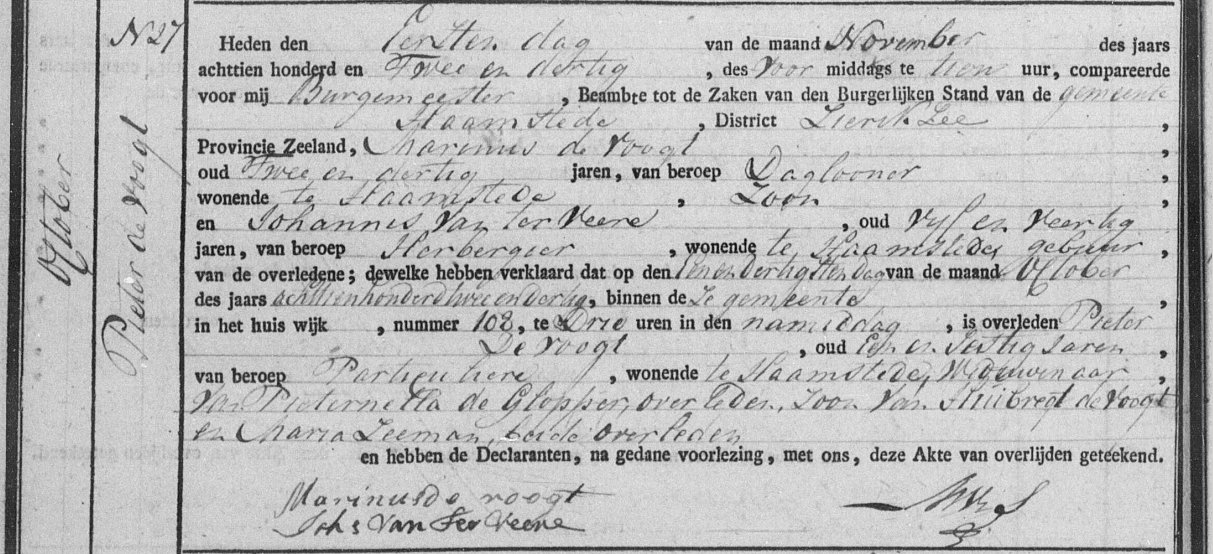 N 27
October
Pieter de Voogt
Heden den Eersten dag van de maand November des jaars
achttien honderd en Twee en dertig , des Voor middags te tien uur, compareerde
voor mij Burgemeester , Beambte tot de Zaken van den Burgerlijken Stand van de gemeente
Haamstede , District Zierikzee ,
Provincie Zeeland, Marinus de Voogt ,
oud Twee en dertig jaren, van beroep Daglooner ,
wonende te Haamstede , Zoon
en Johannis Van ter Veere , oud Vyf en Veertig
jaren, van beroep Herbergier , wonende te Haamstede, gebuur ,
van de overledene; dewelke hebben verklaard dat op den Eenendertigsten dag van de maand October
des jaars achttienhonderd twee en dertig, binnen de Ze gemeente ,
in het huis wijk , nummer 108, te Drie uren in den namiddag , is overleden Pieter
De Voogt , oud Een en Sestig Jaren ,
van beroep Particuliere , wonende te Haamstede, Weduwenaar ,
Van Pieternella de Glopper, overleden, Zoon Van Huibregt de Voogt
en Maria Leeman, beide overleden
en hebben de Declaranten, na gedane voorlezing, met ons, deze Akte van overlijden geteekend.
Marinus De voogt
Joh s Van Ter Veere